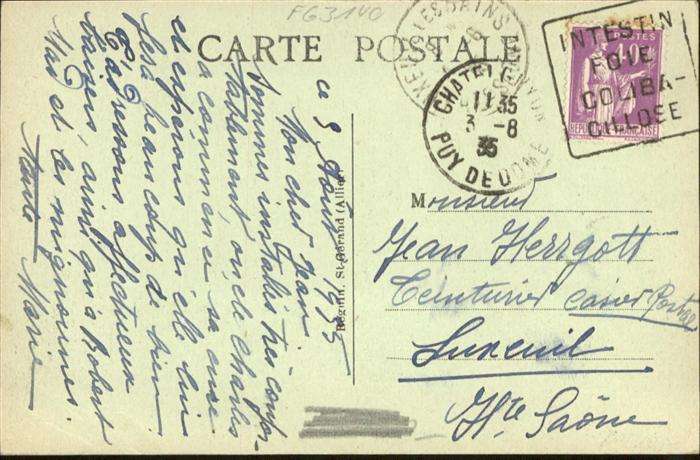 FG3140
CARTE POSTALE
INTESTIN
FOIE
COLIBA-
CILLOSE
POSTES
40c
CHATEL-G
11 35
3 -8
35
PUY DE DOME
ce 3 Août 1935
Mon cher Jean
Sommes installés très confor-
tablement, oncle Charles
a commencé sa cure
et espérons qu'elle lui
fera beaucoup de bien
T'adressons affectueux
baisers, ainsi qu'à Robert
Mad et les mignonnes.
Tante Marie
Béguin, St-Gérand (Allier)
Monsieur
Jean Herrgott
Teinturier casier Postal
Luxeuil
Hte Saône